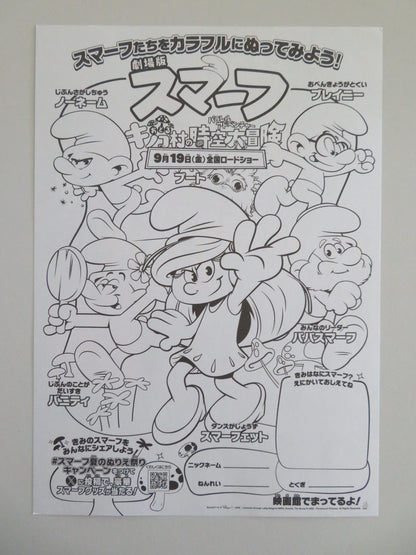 スマーフたちをカラフルにぬってみよう!
劇場版
スマーフ
おどる
キノコ村の時空大冒険
9月19日(金)全国ロードショー
じぶんさがしちゅう
ノーネーム
おべんきょうがとくい
ブレイニー
フート
みんなのリーダー
パパスマーフ
じぶんのことが
だいすき
バニティ
ダンスがじょうず
スマーフェット
きみはなにスマーフ?
えにかいておしえてね
きみのスマーフを
みんなにシェアしよう!
#スマーフ夏のぬりえ祭り
キャンペーンをつけて
Xに投稿で、豪華
スマーフグッズが当たる!
くわしくはこちら
ニックネーム
ねんれい
とくぎ
映画館でまってるよ!